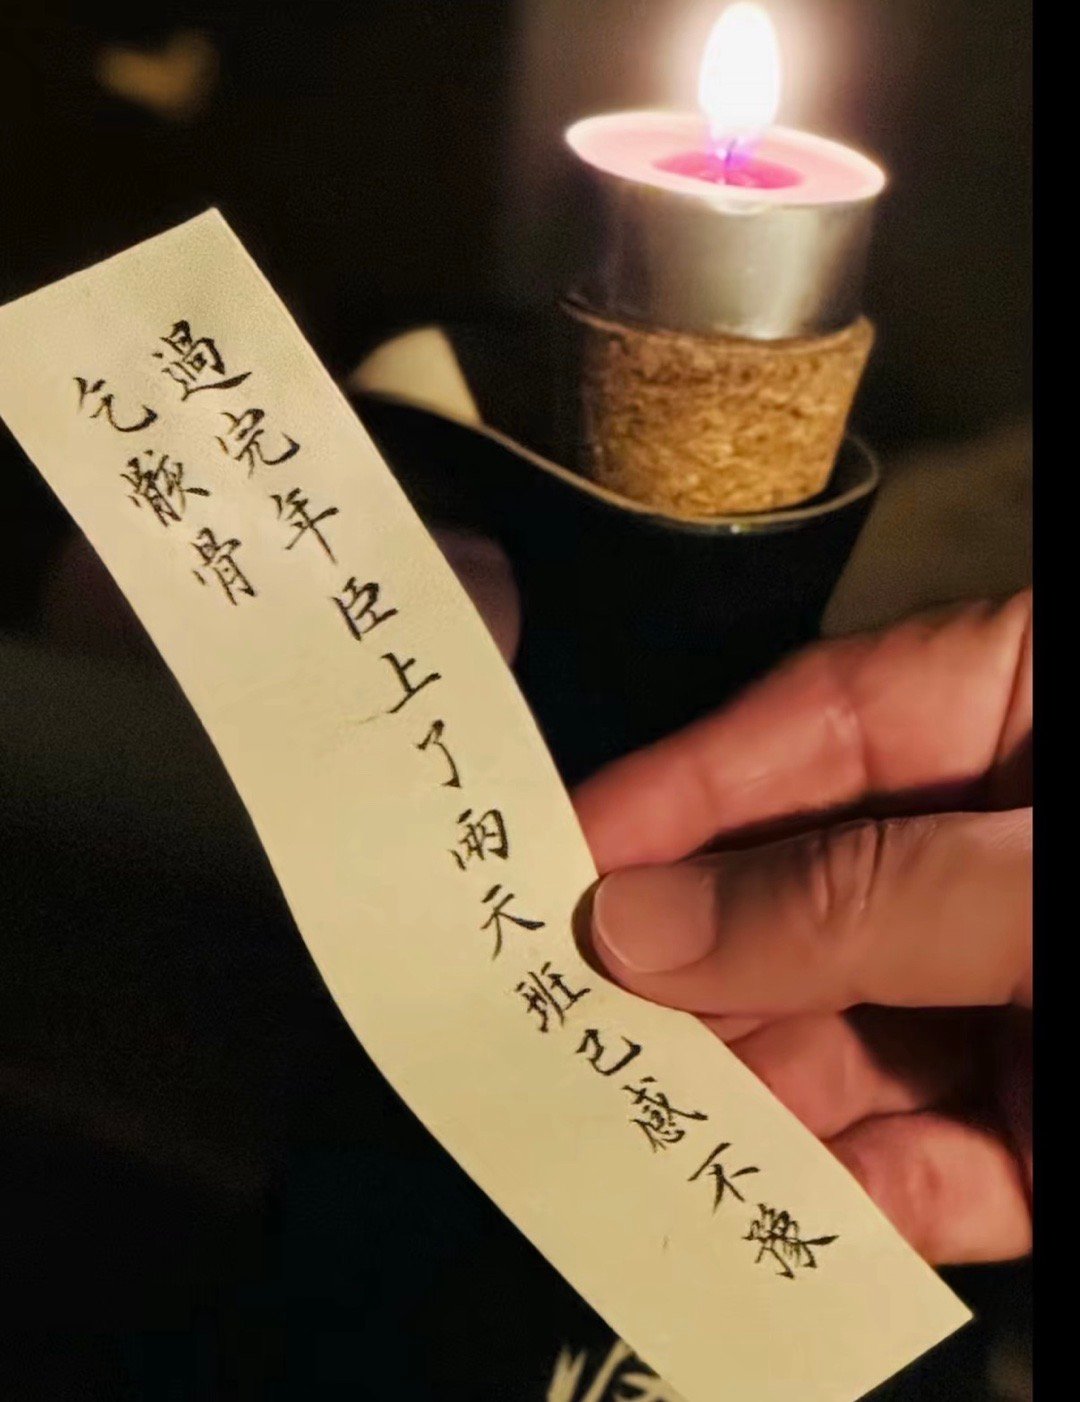 過完年臣上了兩天班已感不豫
乞骸骨